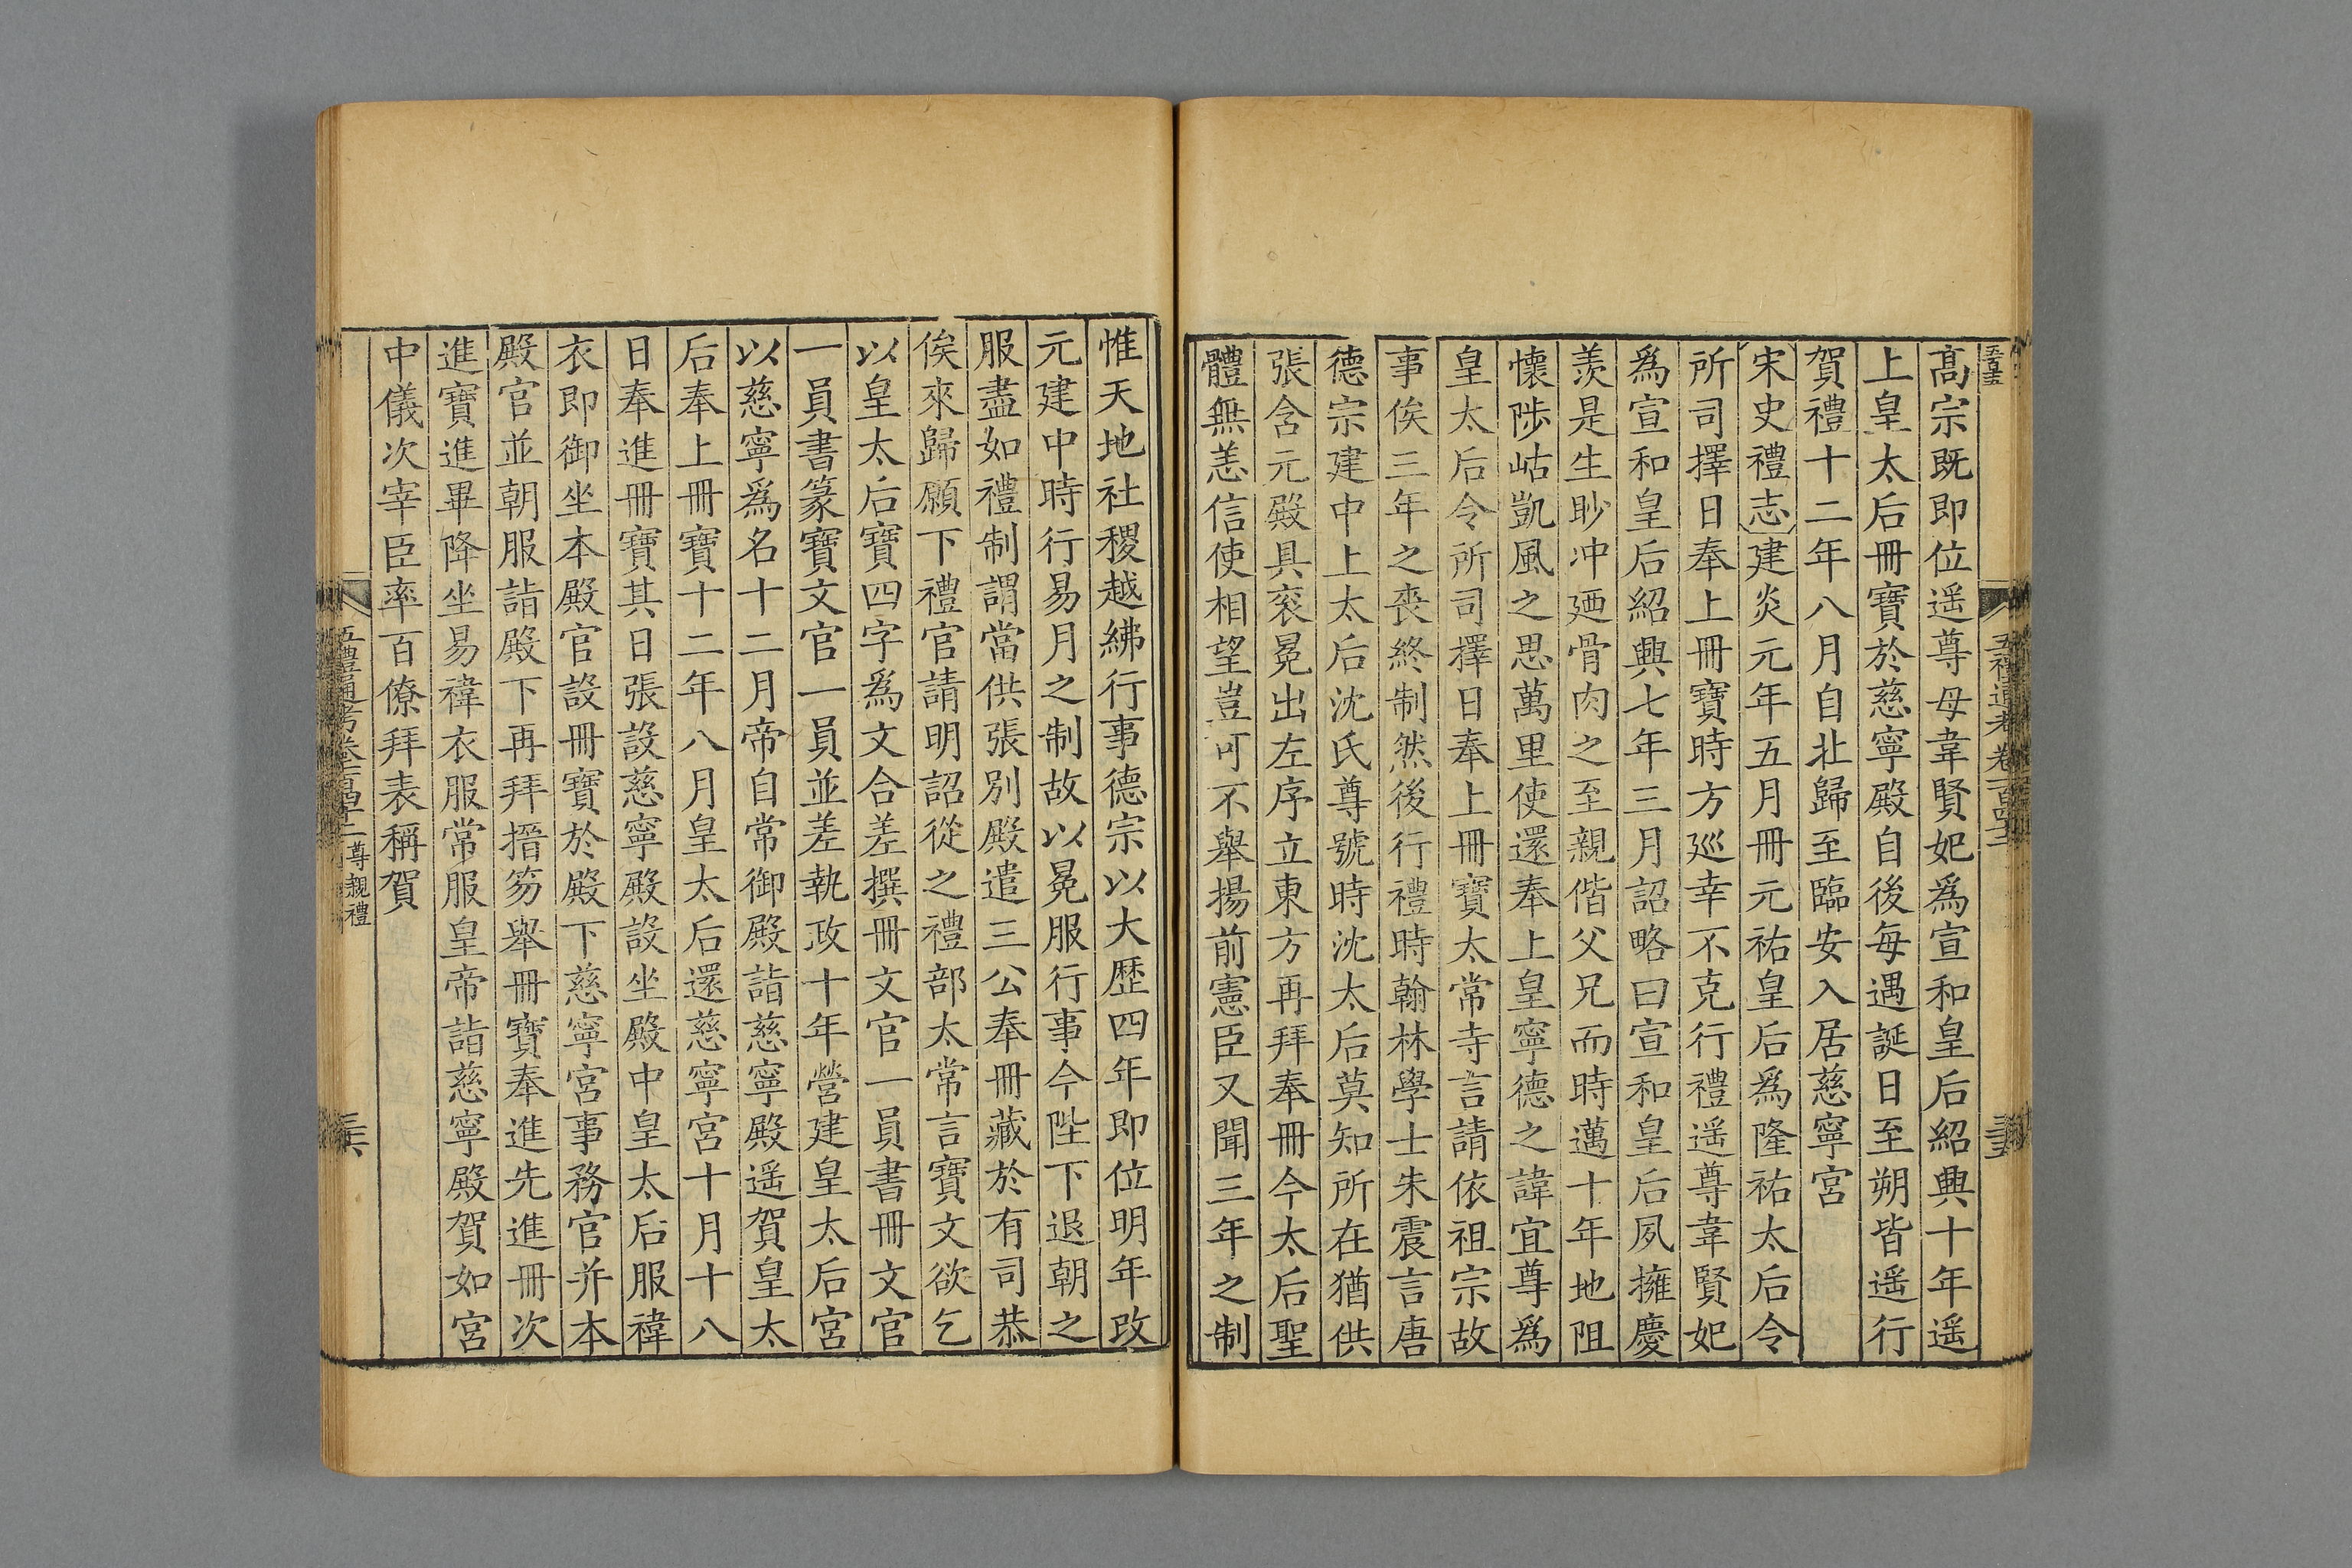 高宗既即位遥尊母韋賢妃爲宣和皇后紹興十年遥
上皇太后冊寶於慈寧殿自後每遇誕日至朔皆遥行
賀禮十二年八月自北歸至臨安入居慈寧宮
宋史禮志建炎元年五月冊元祐皇后爲隆祐太后令
所司擇日奉上冊寶時方廵幸不克行禮遥尊韋賢妃
爲宣和皇后紹興七年三月詔略曰宣和皇后夙擁慶
羨是生眇冲廼骨肉之至親偕父兄而時邁十年地阻
懷陟岵凱風之思萬里使還奉上皇寧德之諱宜尊爲
皇太后令所司擇日奉上冊寶太常寺言請依祖宗故
事俟三年之喪終制然後行禮時翰林學士朱震言唐
德宗建中上太后沈氏尊號時沈太后莫知所在猶供
張含元殿具衮冕出左序立東方再拜奉冊今太后聖
體無恙信使相望豈可不舉揚前憲臣又聞三年之制
惟天地社稷越紼行事德宗以大歷四年即位明年改
元建中時行易月之制故以冕服行事今陛下退朝之
服盡如禮制謂當供張別殿遣三公奉冊藏於有司恭
俟來歸願下禮官請明詔從之禮部太常言寶文欲乞
以皇太后寶四字爲文合差撰冊文官一員書冊文官
一員書篆寶文官一員並差執政十年營建皇太后宮
以慈寧爲名十二月帝自常御殿詣慈寧殿遥賀皇太
后奉上冊寶十二年八月皇太后還慈寧宮十月十八
日奉進冊寶其日張設慈寧殿設坐殿中皇太后服褘
衣即御坐本殿官設冊寶於殿下慈寧宮事務官并本
殿官並朝服詣殿下再拜搢笏舉冊寶奉進先進冊次
進寶進畢降坐易褘衣服常服皇帝詣慈寧殿賀如宮
中儀次宰臣率百僚拜表稱賀
五禮通考卷一百四十二 尊親禮